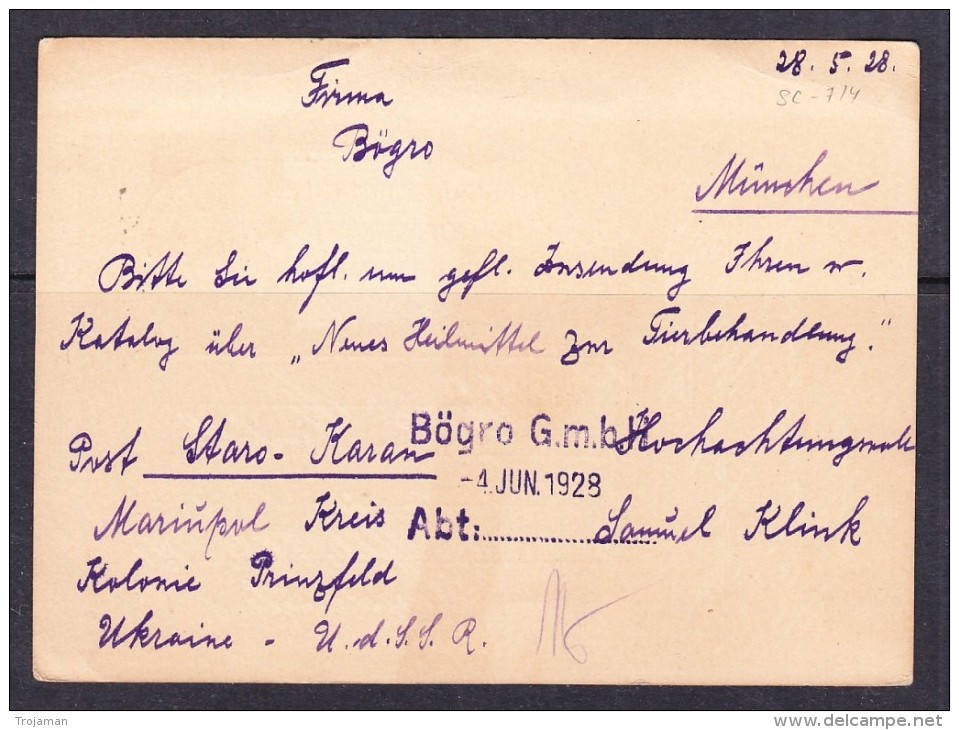 28. 5. 28.
SC-714
Firma
Bögro
München
Bitte Sie höfl. um gefl. Zusendung Ihren w.
Katalog über „Neues Heilmittel zur Tierbehandlung."
Bögro G.m.b.H
Hochachtungsvoll
Post Staro-Karan
-4.JUN.1928
Mariupol Kreis
Abt:
Samuel Klink
Kolonie Prinzfeld
Ukraine - U.d.S.S.R.
Trojaman
www.delcampe.net